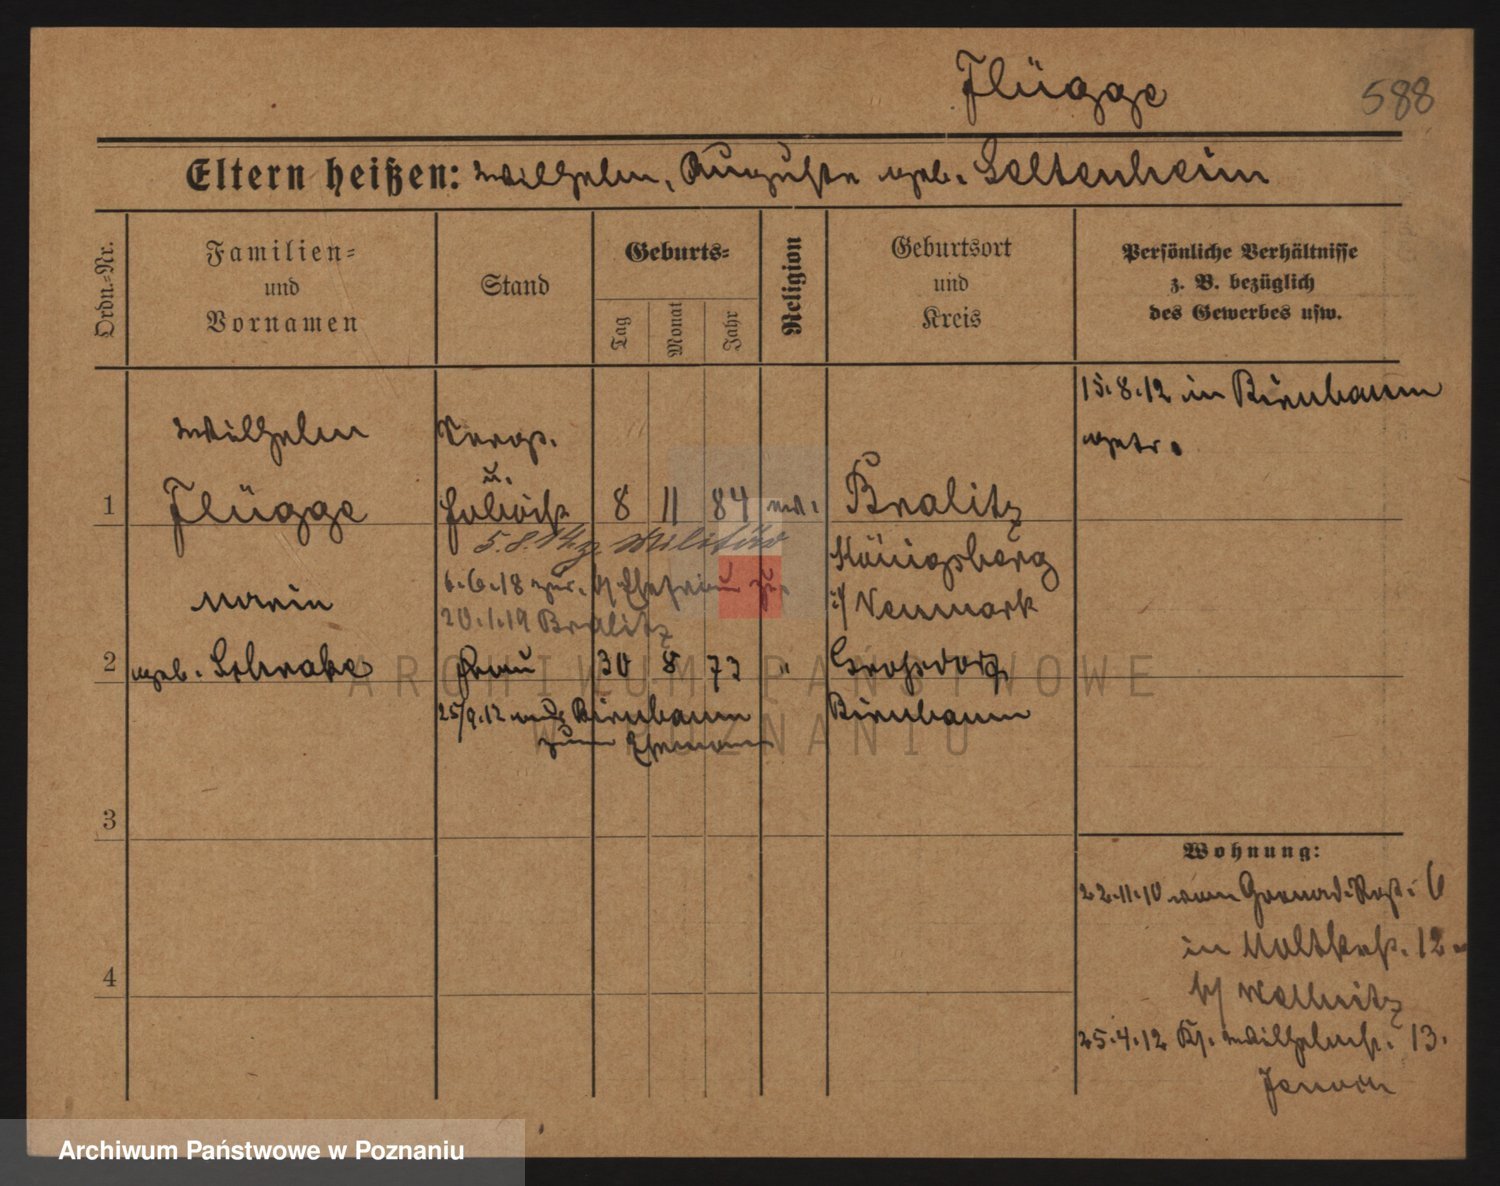 Flügge
588
Eltern heißen: Wilhelm, Auguste geb. Seltenheim
Ordn.-Nr.
Familien-
und
Vornamen
Stand
Geburts-
Tag
Monat
Jahr
Religion
Geburtsort
und
Kreis
Persönliche Verhältnisse
z. B. bezüglich
des Gewerbes usw.
15.8.12 in Birnbaum
getr.
1
Wilhelm
Flügge
u.
8 11 84 Bralitz
5.8.14 z. Militär
Königsberg
6.6.18 zur. b/ Ehefrau
i/ Neumark
20.1.19 Bralitz
2
Marie
geb. Schrabe
Frau
30 8 73 "
Grossdorf
25/9.12 nach Birnbaum
zum Ehemann
Birnbaum
3
4
Wohnung:
22.11.10 von Grenad. Str. 6
in Moltkestr. 12
b/ Wellnitz
25.4.12 Kl. Wilhelmstr. 13.
ARCHIWUM PAŃSTWOWE
W POZNANIU
Archiwum Państwowe w Poznaniu